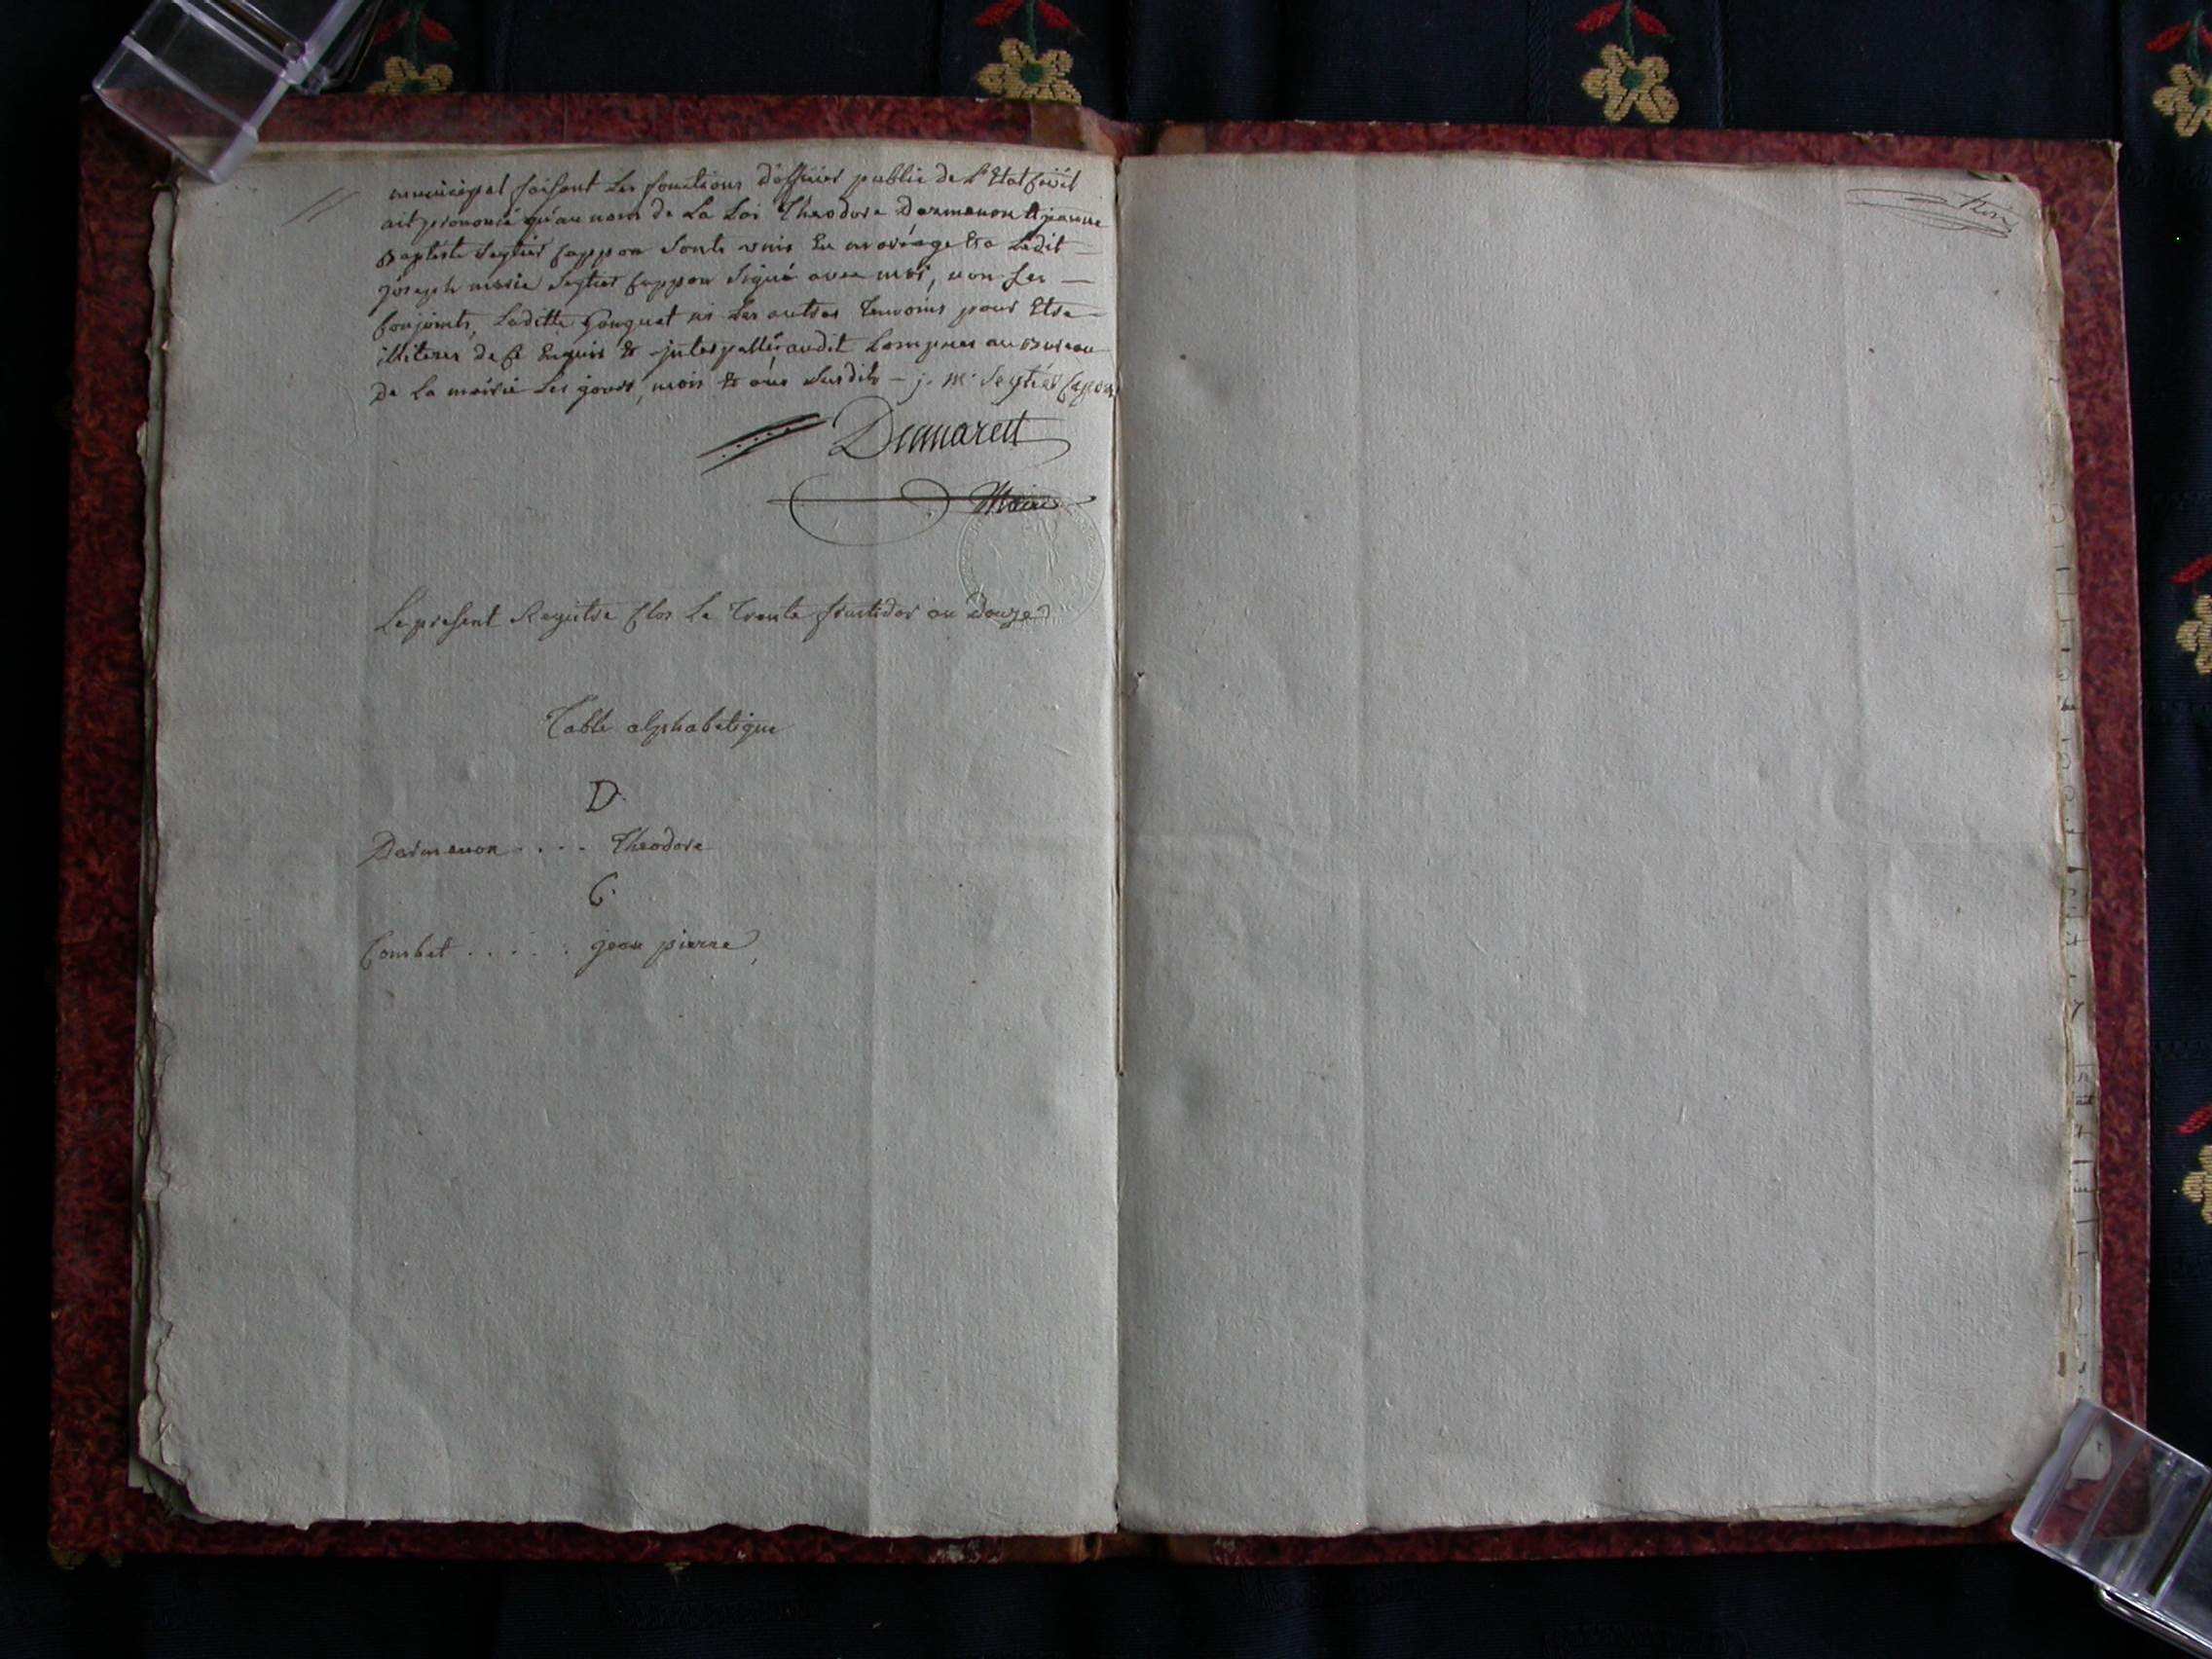 municipal faisant les fonctions d'officier public de l'Etat Civil
ait prononcé qu'au nom de la Loi Theodore Darmenon & jeanne
Baptiste Seytier Cappon sonts unis en mariage & a ledit —
joseph marie Seytier Cappon signé avec moi, non les —
Conjoints, Laditte Gonguet ni les autres temoins pour Etre —
illiteres de ce Enquis & interpellés audit Lompnes au Bureau
de la mairie les jours, mois & ans susdits — j. m. Seytier Capon
Demarest
Maire
Le present Registre Clos le trente fructidor an Douze
Table alphabetique
D.
Darmenon . . . . Theodore
C.
Combet . . . . . jean pierre